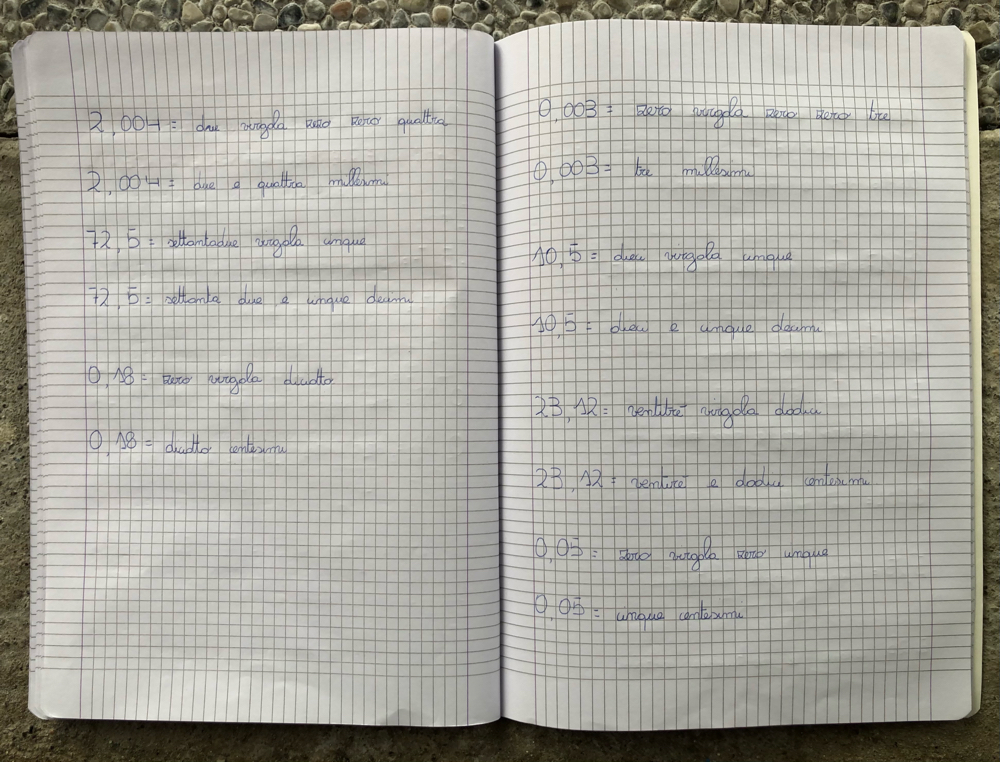 2,004 = due virgola zero zero quattro
2,004 = due e quattro millesimi
72,5 = settantadue virgola cinque
72,5 = settanta due e cinque decimi
0,18 = zero virgola diciotto
0,18 = diciotto centesimi
0,003 = zero virgola zero zero tre
0,003 = tre millesimi
10,5 = dieci virgola cinque
10,5 = dieci e cinque decimi
23,12 = ventitré virgola dodici
23,12 = ventiré e dodici centesimi
0,05 = zero virgola zero cinque
0,05 = cinque centesimi